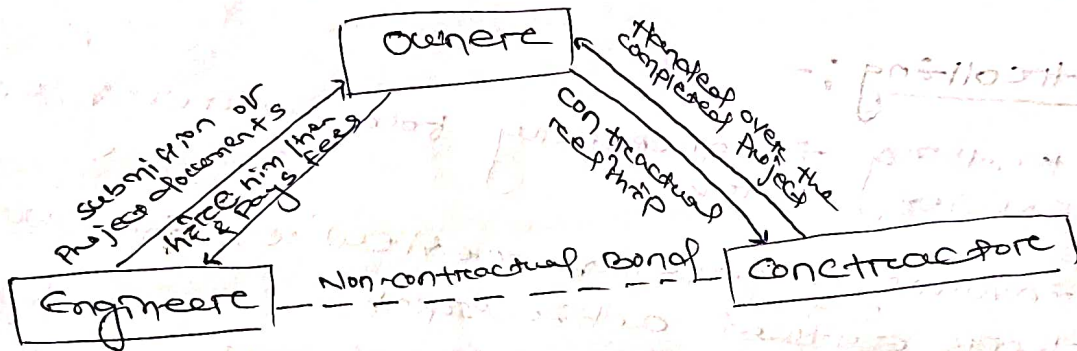 Owner
Submission of
project documents
hire him/her
& pays fees
contractual
relship
Handed over the
completed project
Engineer
Non-contractual Bond
Contractor